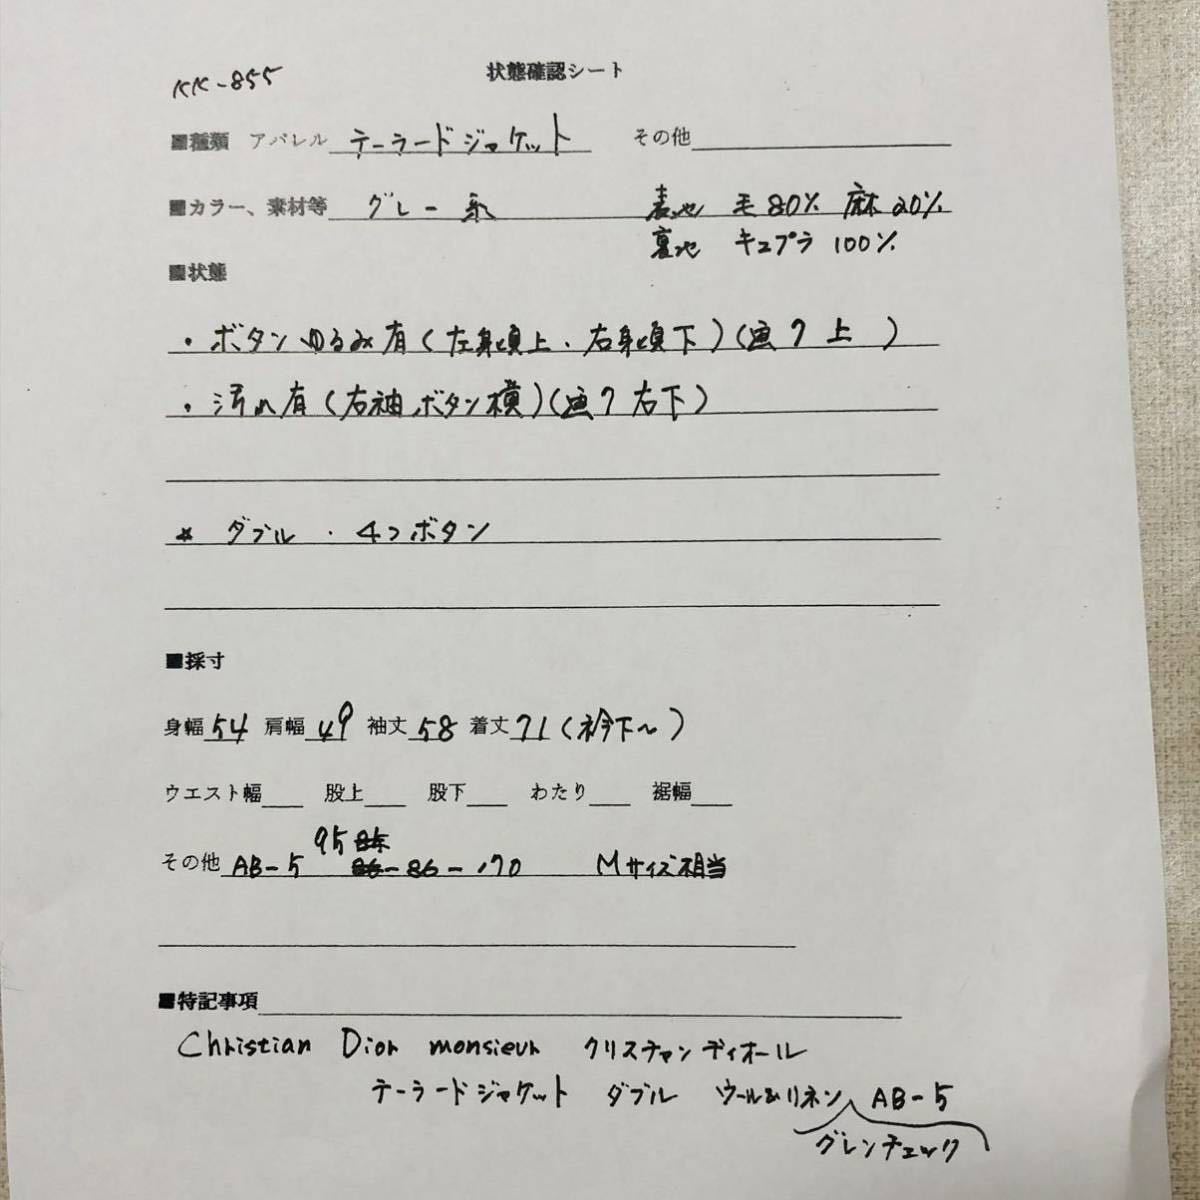 KK-855
状態確認シート
■種類 アパレル テーラードジャケット その他
■カラー、素材等 グレー系 表地 毛80% 麻20%
裏地 キュプラ 100%
■状態
・ボタンゆるみ有(左身頃上・右身頃下)(画7 上)
・汚れ有(右袖ボタン横)(画7 右下)
☆ ダブル・4つボタン
■採寸
身幅 54 肩幅 49 袖丈 58 着丈 71(衿下〜)
ウエスト幅 股上 股下 わたり 裾幅
95
その他 AB-5 -86-170 Mサイズ相当
■特記事項
Christian Dior monsieur クリスチャンディオール
テーラードジャケット ダブル ウール&リネン AB-5
グレンチェック